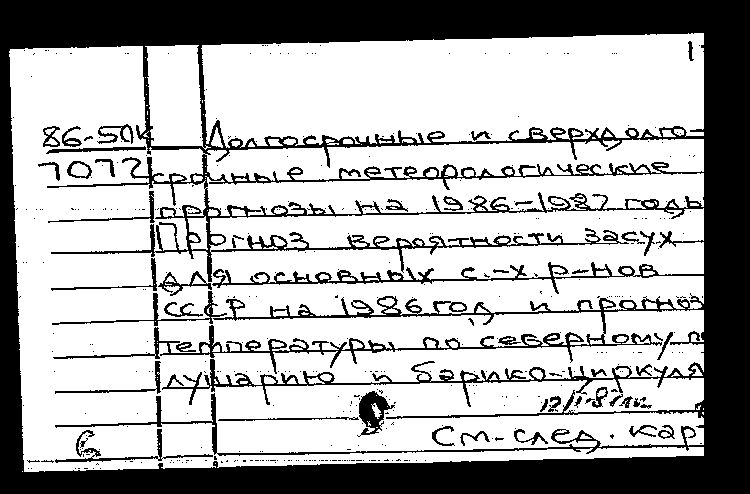 86-5ПК Долгосрочные и сверхдолго-
7072 срочные метеорологические
прогнозы на 1986-1987 годы
Прогноз вероятности засух
для основных с.-х. р-нов
СССР на 1986 год и прогноз
температуры по северному по
лушарию и барико-циркуля
6 См-след. кар